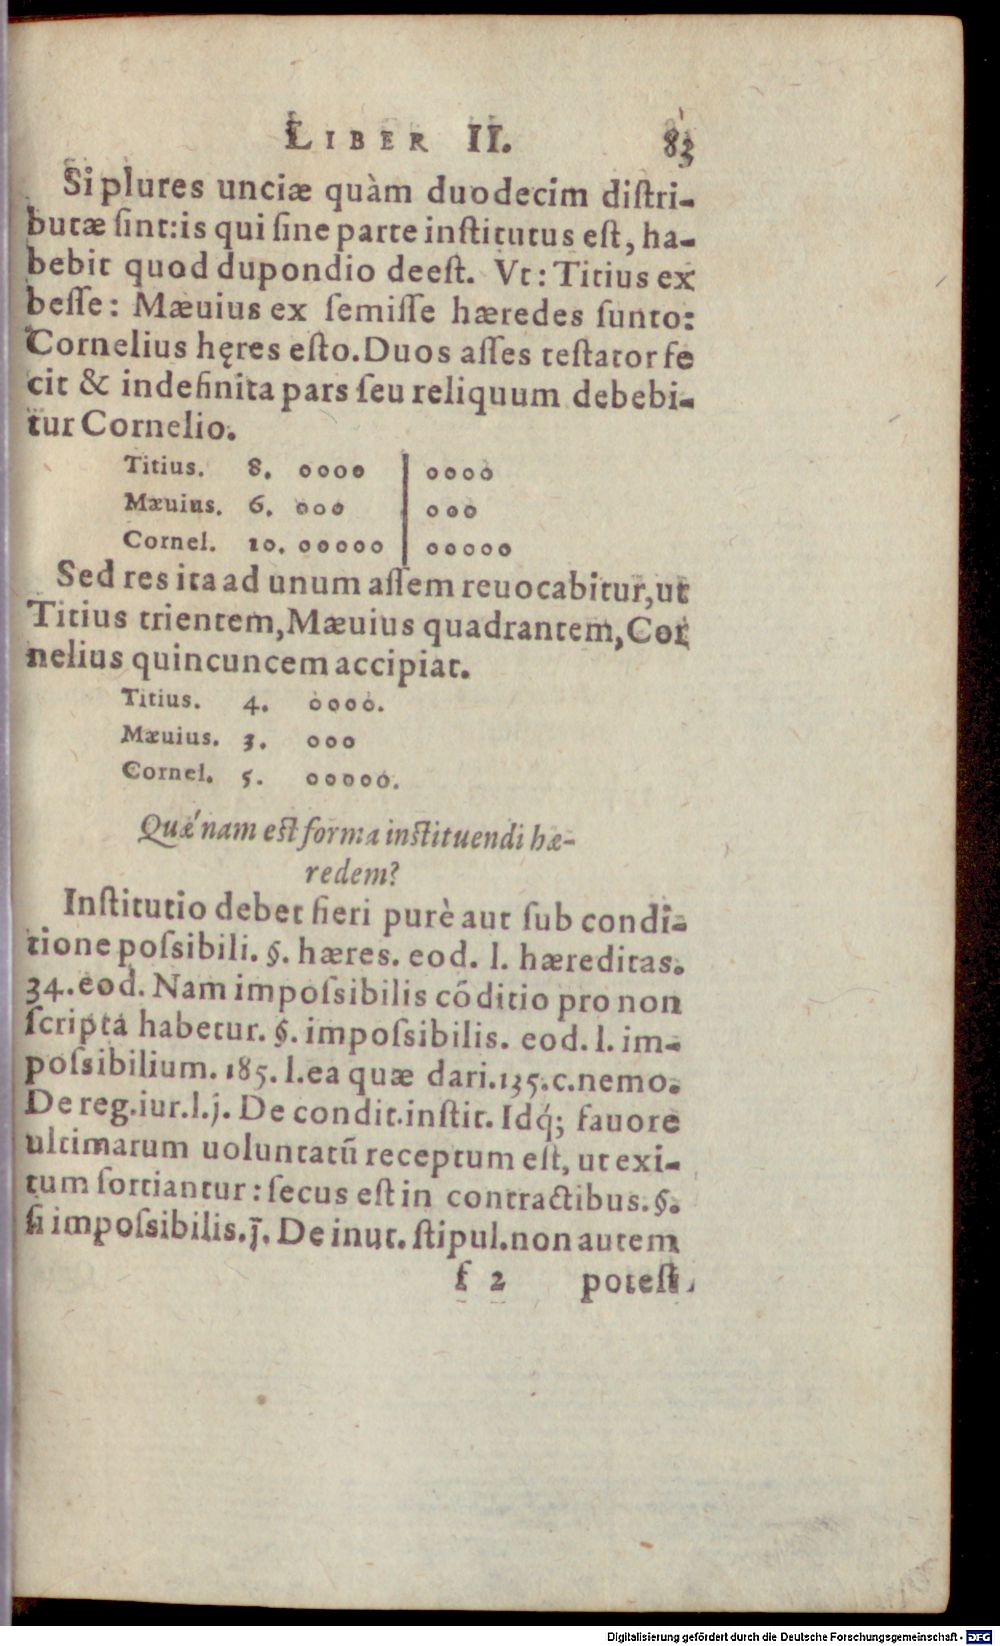 LIBER II. 83
Si plures unciæ quàm duodecim diſtri-
butæ ſint: is qui ſine parte inſtitutus eſt, ha-
bebit quod dupondio deeſt. Vt: Titius ex
beſſe: Mæuius ex ſemiſſe hæredes ſunto:
Cornelius hęres eſto. Duos aſſes teſtator fe
cit & indefinita pars ſeu reliquum debebi-
tur Cornelio.
Titius. 8. oooo | oooo
Mæuius. 6. ooo | ooo
Cornel. 10. ooooo | ooooo
Sed res ita ad unum aſſem reuocabitur, ut
Titius trientem, Mæuius quadrantem, Cor
nelius quincuncem accipiat.
Titius. 4. oooo.
Mæuius. 3. ooo
Cornel. 5. ooooo.
Quænam eſt forma inſtituendi hæ-
redem?
Inſtitutio debet fieri purè aut ſub condi-
tione poſsibili. §. hæres. eod. l. hæreditas.
34. eod. Nam impoſsibilis cōditio pro non
ſcripta habetur. §. impoſsibilis. eod. l. im-
poſsibilium. 185. l. ea quæ dari. 135. c. nemo.
De reg. iur. l. j. De condit. inſtit. Idq́; fauore
ultimarum uoluntatũ receptum eſt, ut exi-
tum ſortiantur: ſecus eſt in contractibus. §.
ſi impoſsibilis. j̄. De inut. ſtipul. non autem
f 2 poteſt
Digitalisierung gefördert durch die Deutsche Forschungsgemeinschaft - DFG